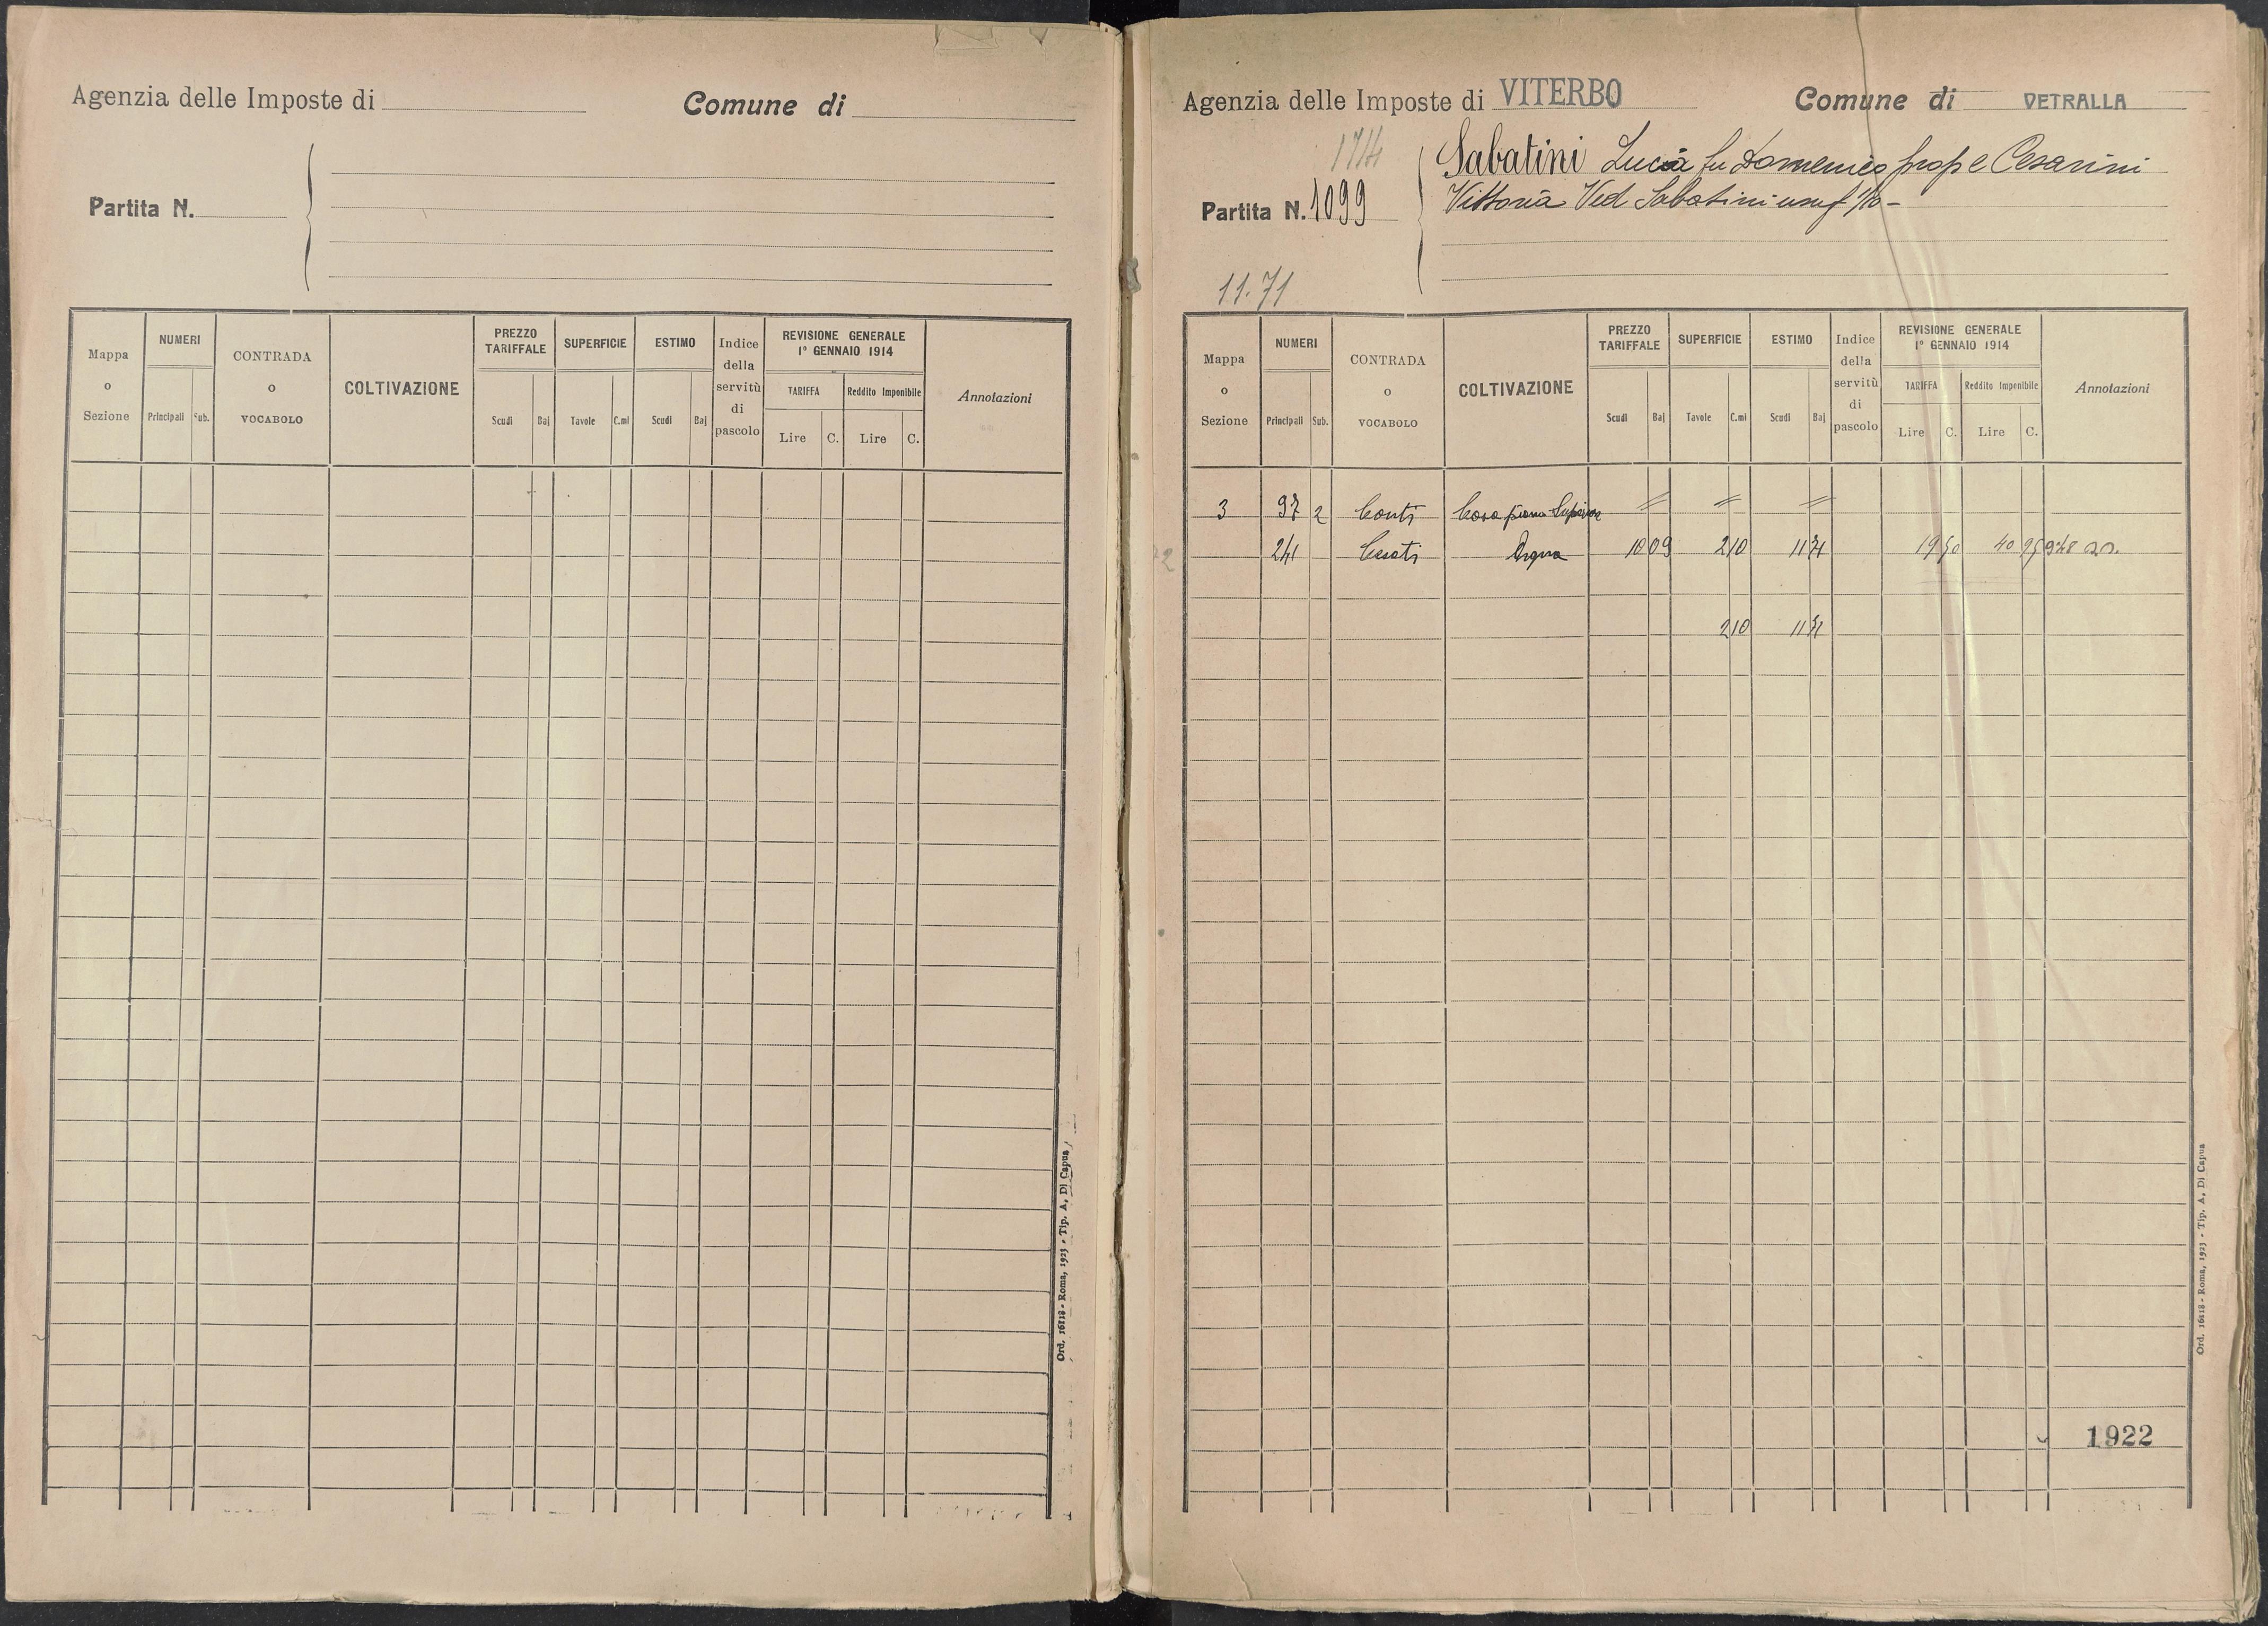 Agenzia delle Imposte di
Comune di
Partita N.
Mappa o Sezione
NUMERI
Principali Sub.
CONTRADA o VOCABOLO
COLTIVAZIONE
PREZZO TARIFFALE
Scudi Baj
SUPERFICIE
Tavole C.mi
ESTIMO
Scudi Baj
Indice della servitù di pascolo
REVISIONE GENERALE
1° GENNAIO 1914
TARIFFA
Lire C.
Reddito Imponibile
Lire C.
Annotazioni
Ord. 16118 - Roma, 1923 - Tip. A. Di Capua
Agenzia delle Imposte di VITERBO
Comune di VETRALLA
1714
Partita N. 1099
Sabatini Lucia fu Domenico prop e Cesarini
Vittoria Ved Sabatini usuf 1/10 -
11.71
Mappa o Sezione
NUMERI
Principali Sub.
CONTRADA o VOCABOLO
COLTIVAZIONE
PREZZO TARIFFALE
Scudi Baj
SUPERFICIE
Tavole C.mi
ESTIMO
Scudi Baj
Indice della servitù di pascolo
REVISIONE GENERALE
1° GENNAIO 1914
TARIFFA
Lire C.
Reddito Imponibile
Lire C.
Annotazioni
3 97 2 Conti Casa piano Superiore = = =
241 Cesati Vigna 10 09 2 10 11 71 19 50 40 95
2 10 11 71
1922
Ord. 1618 - Roma, 1923 - Tip. A. Di Capua